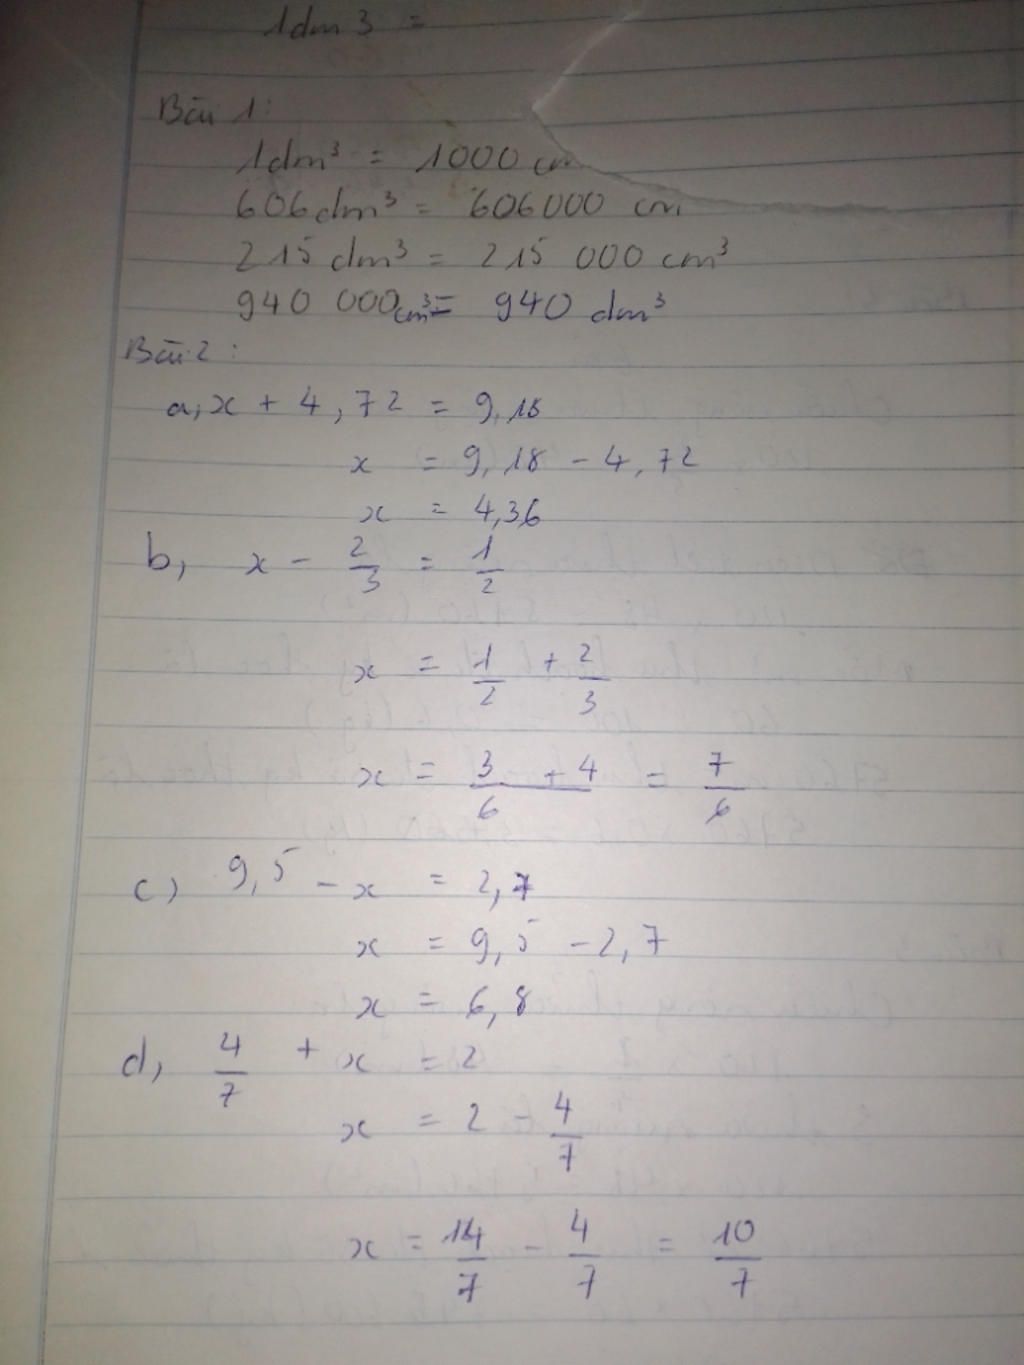 1dm3 =
Bài 1:
1dm³ = 1000 cm
606dm³ = 606000 cm
215 dm³ = 215 000 cm³
940 000cm³ = 940 dm³
Bài 2:
a, x + 4,72 = 9,18
x = 9,18 - 4,72
x = 4,36
b, x - 2/3 = 1/2
x = 1/2 + 2/3
x = 3 + 4/6 = 7/6
c) 9,5 - x = 2,7
x = 9,5 - 2,7
x = 6,8
d, 4/7 + x = 2
x = 2 - 4/7
x = 14/7 - 4/7 = 10/7